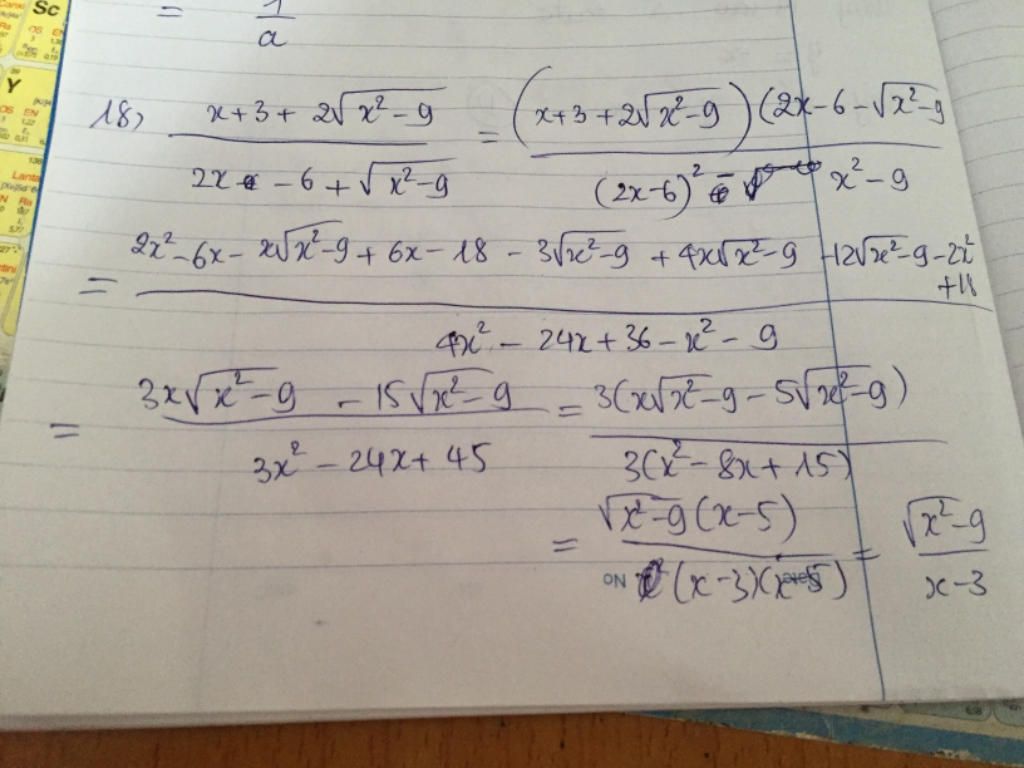 = 1/a
18, (x+3+2√(x²-9))/(2x-6+√(x²-9)) = ((x+3+2√(x²-9))(2x-6-√(x²-9)))/((2x-6)² - x²-9)
= (2x²-6x-x√(x²-9)+6x-18-3√(x²-9)+4x√(x²-9)-12√(x²-9)-2x²+18)/(4x²-24x+36-x²-9)
= (3x√(x²-9)-15√(x²-9))/(3x²-24x+45) = (3(x√(x²-9)-5√(x²-9)))/(3(x²-8x+15))
= (√(x²-9)(x-5))/((x-3)(x-5)) = √(x²-9)/(x-3)
Sc
Y
NO